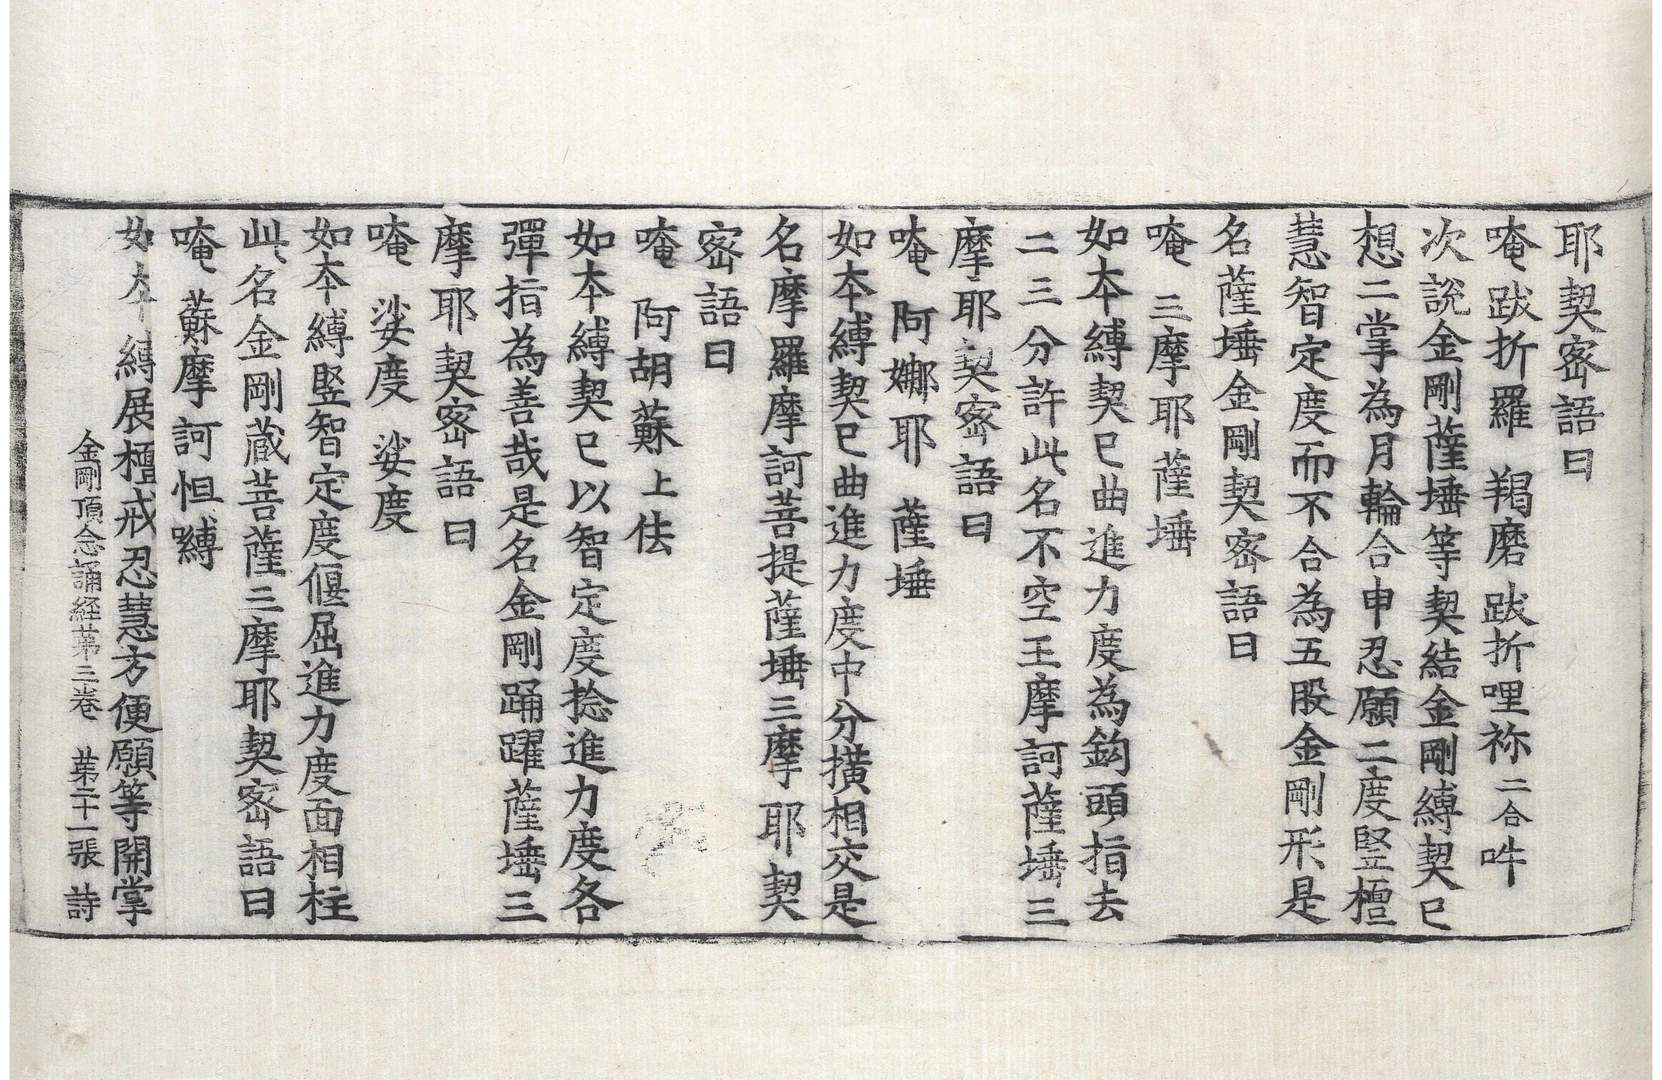 耶契密語曰
唵 跋折羅 羯磨 跋折哩祢二合吽
次說金剛薩埵等契結金剛縛契已
想二掌為月輪合申忍願二度竪檀
慧智定度而不合為五股金剛形是
名薩埵金剛契密語曰
唵 三摩耶薩埵
如本縛契已曲進力度為鉤頭指去
二三分許此名不空王摩訶薩埵三
摩耶契密語曰
唵 阿娜耶 薩埵
如本縛契已曲進力度中分橫相交是
名摩羅摩訶菩提薩埵三摩耶契
密語曰
唵 阿胡蘇上佉
如本縛契已以智定度捻進力度各
彈指為善哉是名金剛踊躍薩埵三
摩耶契密語曰
唵 娑度 娑度
如本縛竪智定度偃屈進力度面相柱
此名金剛藏菩薩三摩耶契密語曰
唵 蘇摩訶怛嚩
如本縛展檀戒忍慧方便願等開掌
金剛頂念誦経苐三卷 苐二十一張 詩